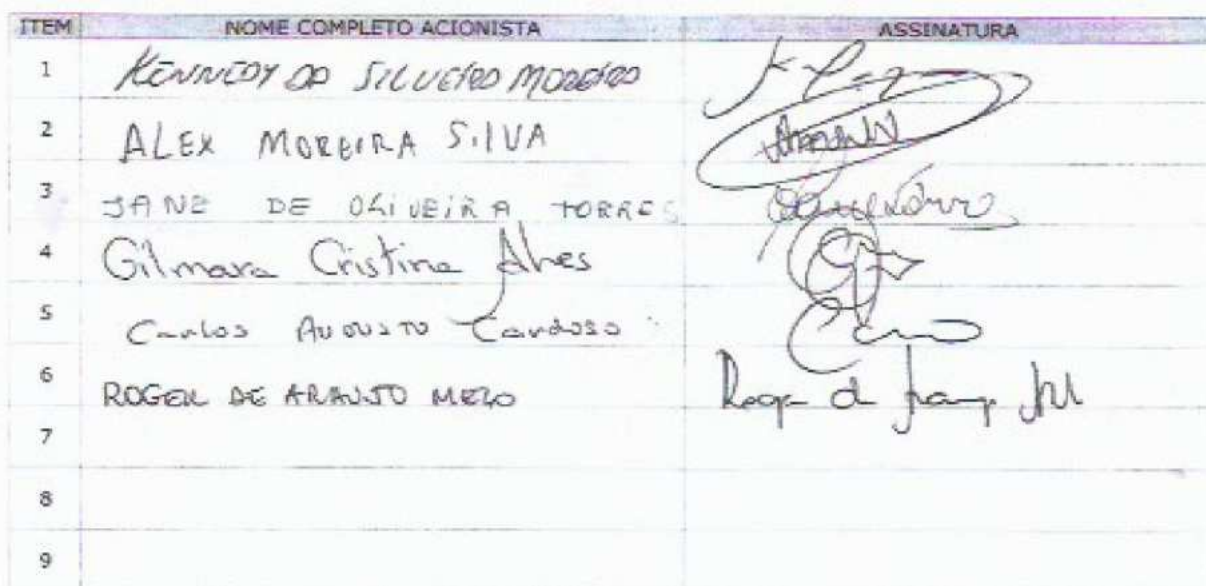 ITEM NOME COMPLETO ACIONISTA ASSINATURA
1 KENNEDY DA SILVEIRA MOREIRA
2 ALEX MOREIRA SILVA
3 JANE DE OLIVEIRA TORRES
4 Gilmara Cristina Alves
5 Carlos AUGUSTO Cardoso
6 ROGER DE ARAUJO MELO
7
8
9